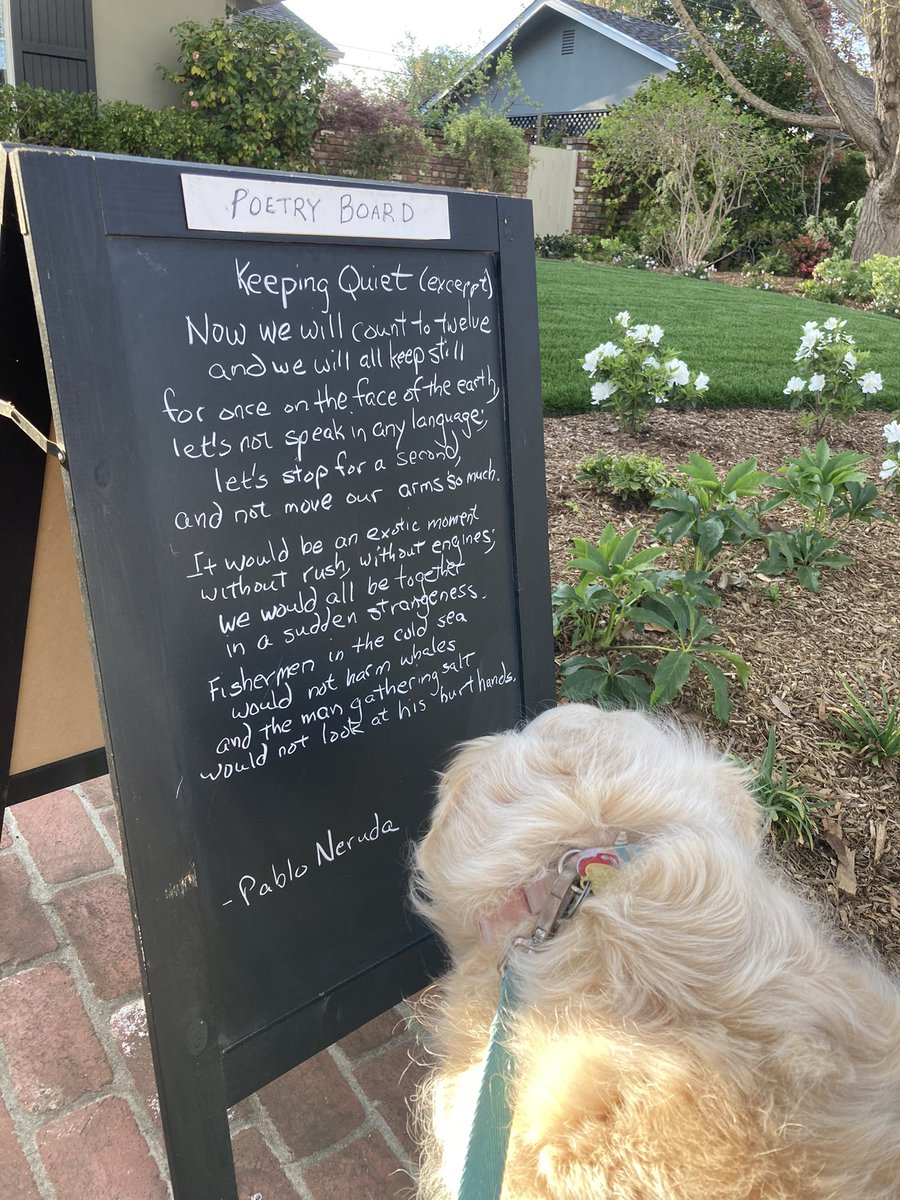 POETRY BOARD
Keeping Quiet (excerpt)
Now we will count to twelve
and we will all keep still
for once on the face of the earth,
let's not speak in any language;
let's stop for a second,
and not move our arms so much.
It would be an exotic moment
without rush, without engines;
we would all be together
in a sudden strangeness.
Fishermen in the cold sea
would not harm whales
and the man gathering salt
would not look at his hurt hands.
- Pablo Neruda